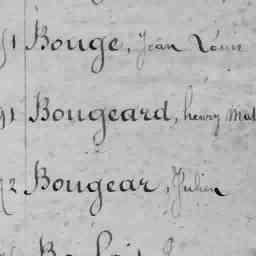 91 Bouge, Jean Louis
91 Bougeard, henry
92 Bougear, Julien